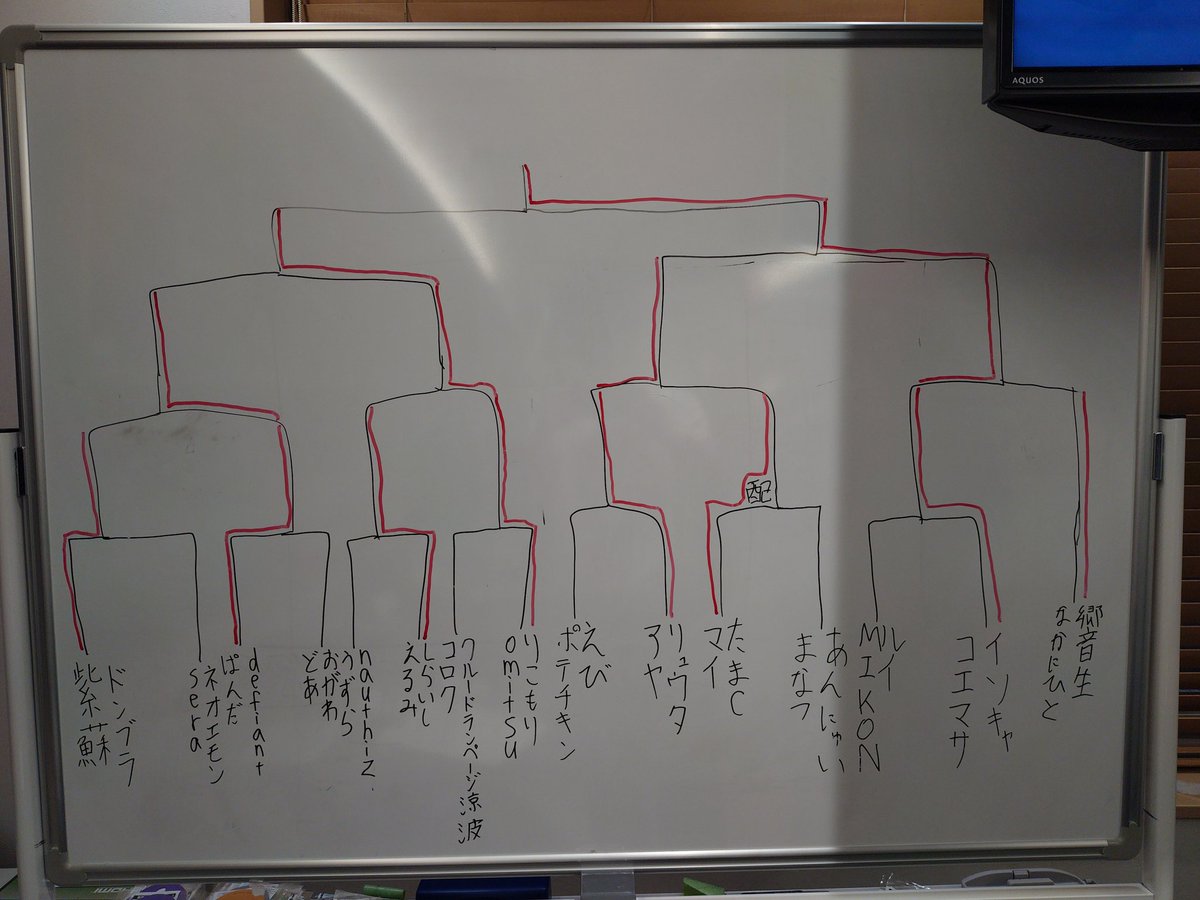 AQUOS
配
ドンブラ
紫蘇
ネオエモン
sera
defiant
ぱんだ
おがわ
どあ
nauthiz.
うずら
しらいし
えるみ
クルードランページ涼波
コロク
りこもり
omitsu
えび
ポテチキン
リュウタ
アヤ
たまC
マイ
あんにゅい
まなつ
ルイ
MIKON
イソキャ
コエマサ
郷音生
なかにひと